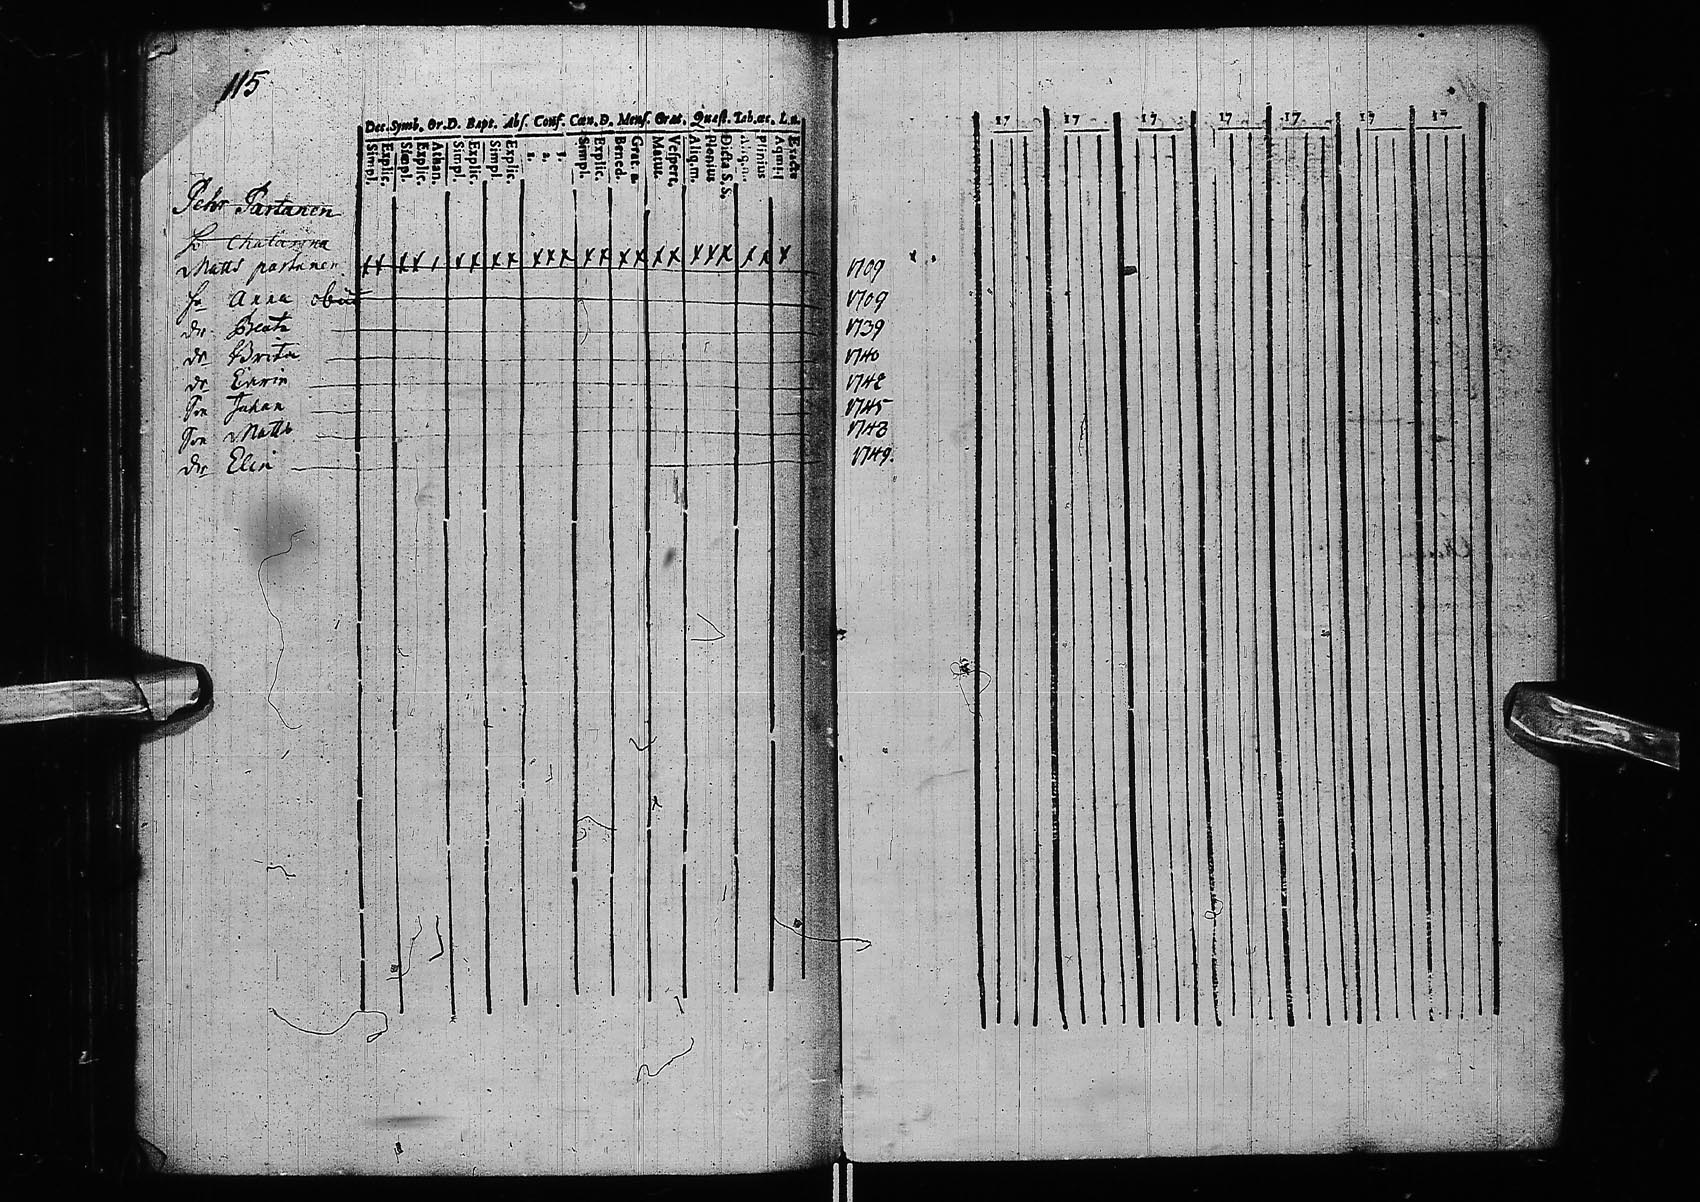 115
Dec. Symb. Or.D. Bapt. Abs. Conf. Cœn.D. Mens. Grat. Quæst. Tab.œc. L.n.
Simpl. Explic. Simpl. Explic. Athan. Simpl. Explic. Simpl. Explic. 1. 2. 3. Simpl. Explic. Bened. Grat. a. Matut. Vespert. Aliq.m. Plenius Dicta S.S. Plenius Exacte
17 17 17 17 17 17 17
Pehr Partanen
h Chatarina
Matts partanen x x x x x x x x x x x x x x x x x x x x x x x x 1709
hu Anna obiit 1709
dr Beata 1739
dr Brita 1740
dr Carin 1742
Son Johan 1745
Son Matts 1748
dr Elin 1749.